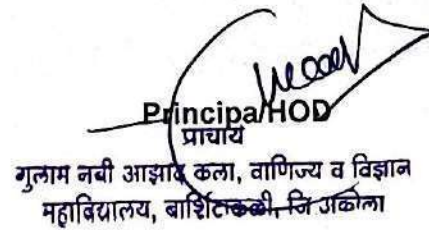 Principal/HOD
प्राचार्य
गुलाम नबी आझाद कला, वाणिज्य व विज्ञान
महाविद्यालय, बार्शिटाकळी, जि अकोला